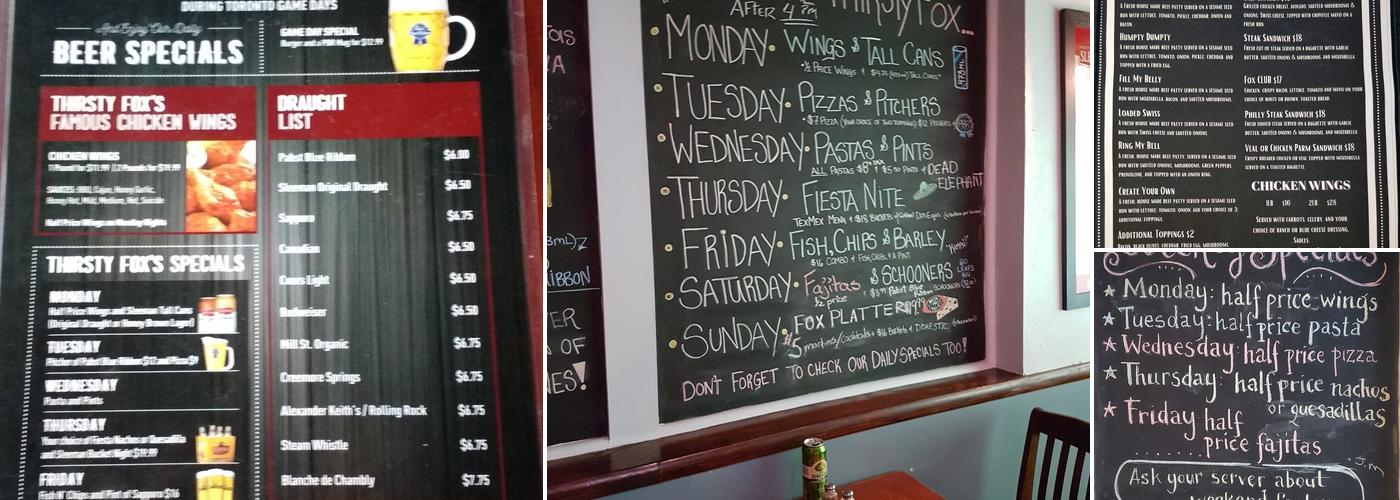 DURING TORONTO GAME DAYS
And Enjoy Our Daily
BEER SPECIALS
GAME DAY SPECIAL
Burger and a PBR Mug for $12.99
THIRSTY FOX'S
FAMOUS CHICKEN WINGS
CHICKEN WINGS
1 Pound for $11.99 | 2 Pounds for $19.99
SAUCES: BBQ, Cajun, Honey Garlic,
Honey Hot, Mild, Medium, Hot, Suicide
Half Price Wings on Monday Nights
THIRSTY FOX'S SPECIALS
MONDAY
Half Price Wings and Sleeman Tall Cans
(Original Draught or Honey Brown Lager)
TUESDAY
Pitcher of Pabst Blue Ribbon $12 and Pizza $9
WEDNESDAY
Pasta and Pints
THURSDAY
Your choice of Fiesta Nachos or Quesadilla
and Sleeman Bucket Night $19.99
FRIDAY
Fish N' Chips and Pint of Sapporo $16
DRAUGHT
LIST
Pabst Blue Ribbon $6.00
Sleeman Original Draught $6.50
Sapporo $6.75
Canadian $6.50
Coors Light $6.50
Budweiser $6.50
Mill St. Organic $6.75
Creemore Springs $6.75
Alexander Keith's / Rolling Rock $6.75
Steam Whistle $6.75
Blanche de Chambly $7.75
RIBBON
OF
AFTER 4 PM
THIRSTY FOX...
MONDAY • WINGS & TALL CANS
• ½ PRICE WINGS & $4.75 (473ml) TALL CANS •
473mL
TUESDAY • PIZZAS & PITCHERS
• $7 PIZZA (YOUR CHOICE OF TWO TOPPINGS) $12 PITCHERS
PBR
WEDNESDAY • PASTAS & PINTS
ALL PASTAS $8 + TAX & $5.00 PINTS • DEAD ELEPHANT
THURSDAY • FIESTA NITE
TEX MEX MENU & $18 BUCKETS
FRIDAY • FISH, CHIPS & BARLEY
$16 COMBO • FISH, CHIPS, & A PINT
SATURDAY • Fajitas & SCHOONERS
½ price
$8.99 Pabst Blue Ribbon SCHOONERS
GO LEAFS GO
SUNDAY • FOX PLATTER 19.99
$5 martinis/cocktails & $16 Buckets of DOMESTIC
DON'T FORGET TO CHECK OUR DAILY SPECIALS TOO!
A FRESH HOUSE MADE BEEF PATTY SERVED ON A SESAME SEED
BUN WITH LETTUCE, TOMATO, PICKLE, CHEDDAR, ONION AND
BACON
HUMPTY DUMPTY
A FRESH HOUSE MADE BEEF PATTY SERVED ON A SESAME SEED
BUN WITH LETTUCE, TOMATO, ONION, PICKLE, CHEDDAR, AND
TOPPED WITH A FRIED EGG.
FILL MY BELLY
A FRESH HOUSE MADE BEEF PATTY SERVED ON A SESAME SEED
BUN WITH MOZZARELLA, BACON, AND MUSHROOMS.
LOADED SWISS
A FRESH HOUSE MADE BEEF PATTY SERVED ON A SESAME SEED
BUN WITH SWISS CHEESE AND SAUTÉED ONIONS
RING MY BELL
A FRESH HOUSE MADE BEEF PATTY, SERVED ON A SESAME SEED
BUN WITH SAUTÉED ONIONS, MUSHROOMS, GREEN PEPPERS,
PROVOLONE, AND TOPPED WITH AN ONION RING.
CREATE YOUR OWN
A FRESH HOUSE MADE BEEF PATTY, SERVED ON A SESAME SEED
BUN WITH LETTUCE, TOMATO, ONION, AND YOUR CHOICE OF 3
ADDITIONAL TOPPINGS.
ADDITIONAL TOPPINGS $2
BACON, BLACK OLIVES, CHEDDAR, FRIED EGG, MUSHROOMS,
GRILLED CHICKEN BREAST, AVOCADO, SAUTÉED MUSHROOMS &
ONIONS, SWISS CHEESE, TOPPED WITH CHIPOTLE MAYO ON A
FRESH BUN.
STEAK SANDWICH $18
FRESH CUT OF STEAK SERVED ON A BAGUETTE WITH GARLIC
BUTTER, SAUTÉED ONIONS & MUSHROOMS, AND MOZZARELLA
FOX CLUB $17
CHICKEN, CRISPY BACON, LETTUCE, TOMATO AND MAYO ON YOUR
CHOICE OF WHITE OR BROWN, TOASTED BREAD
PHILLY STEAK SANDWICH $18
FRESH SHAVED STEAK SERVED ON A BAGUETTE WITH GARLIC
BUTTER, SAUTÉED ONIONS & MUSHROOMS, AND MOZZARELLA
VEAL OR CHICKEN PARM SANDWICH $18
CRISPY BREADED CHICKEN OR VEAL TOPPED WITH MOZZARELLA
SERVED ON A TOASTED BAGUETTE
CHICKEN WINGS
1LB $16 2LB $28
SERVED WITH CARROTS, CELERY, AND YOUR
CHOICE OF RANCH OR BLUE CHEESE DRESSING.
SAUCES:
Specials
★ Monday: half price wings
★ Tuesday: half price pasta
★ Wednesday: half price pizza
★ Thursday: half price nachos
or quesadillas
★ Friday half
price fajitas
J.M
Ask your server about